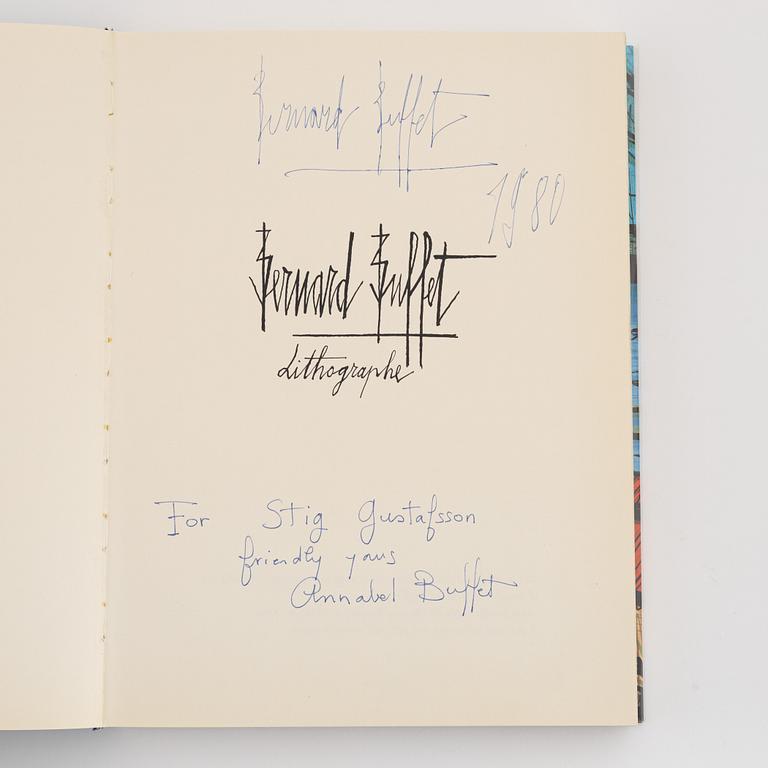 Bernard Buffet
1980
Bernard Buffet
Lithographe
For Stig Gustafsson
friendly yous
Annabel Buffet